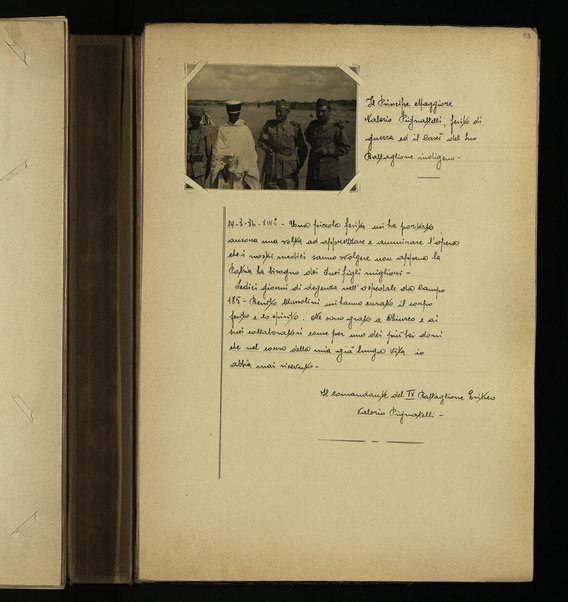 53
Il Principe Maggiore
Valerio Pignatelli, ferito di
guerra ed il Lucì del suo
Battaglione indigeno -
14-3-36-XIVº - Una piccola ferita mi ha portato
ancora una volta ad apprezzare e ammirare l'opera
che i nostri medici sanno svolgere non appena la
Patria ha bisogno dei suoi figli migliori -
Sedici giorni di degenza nell'ospedale da campo
185 - Benito Mussolini mi hanno curato il corpo
ferito e lo spirito. Ne sono grato a Chiurco e ai
suoi collaboratori come per uno dei più bei doni
che nel corso della mia già lunga vita io
abbia mai ricevuto -
Il comandante del IX Battaglione Eritreo
Valerio Pignatelli -